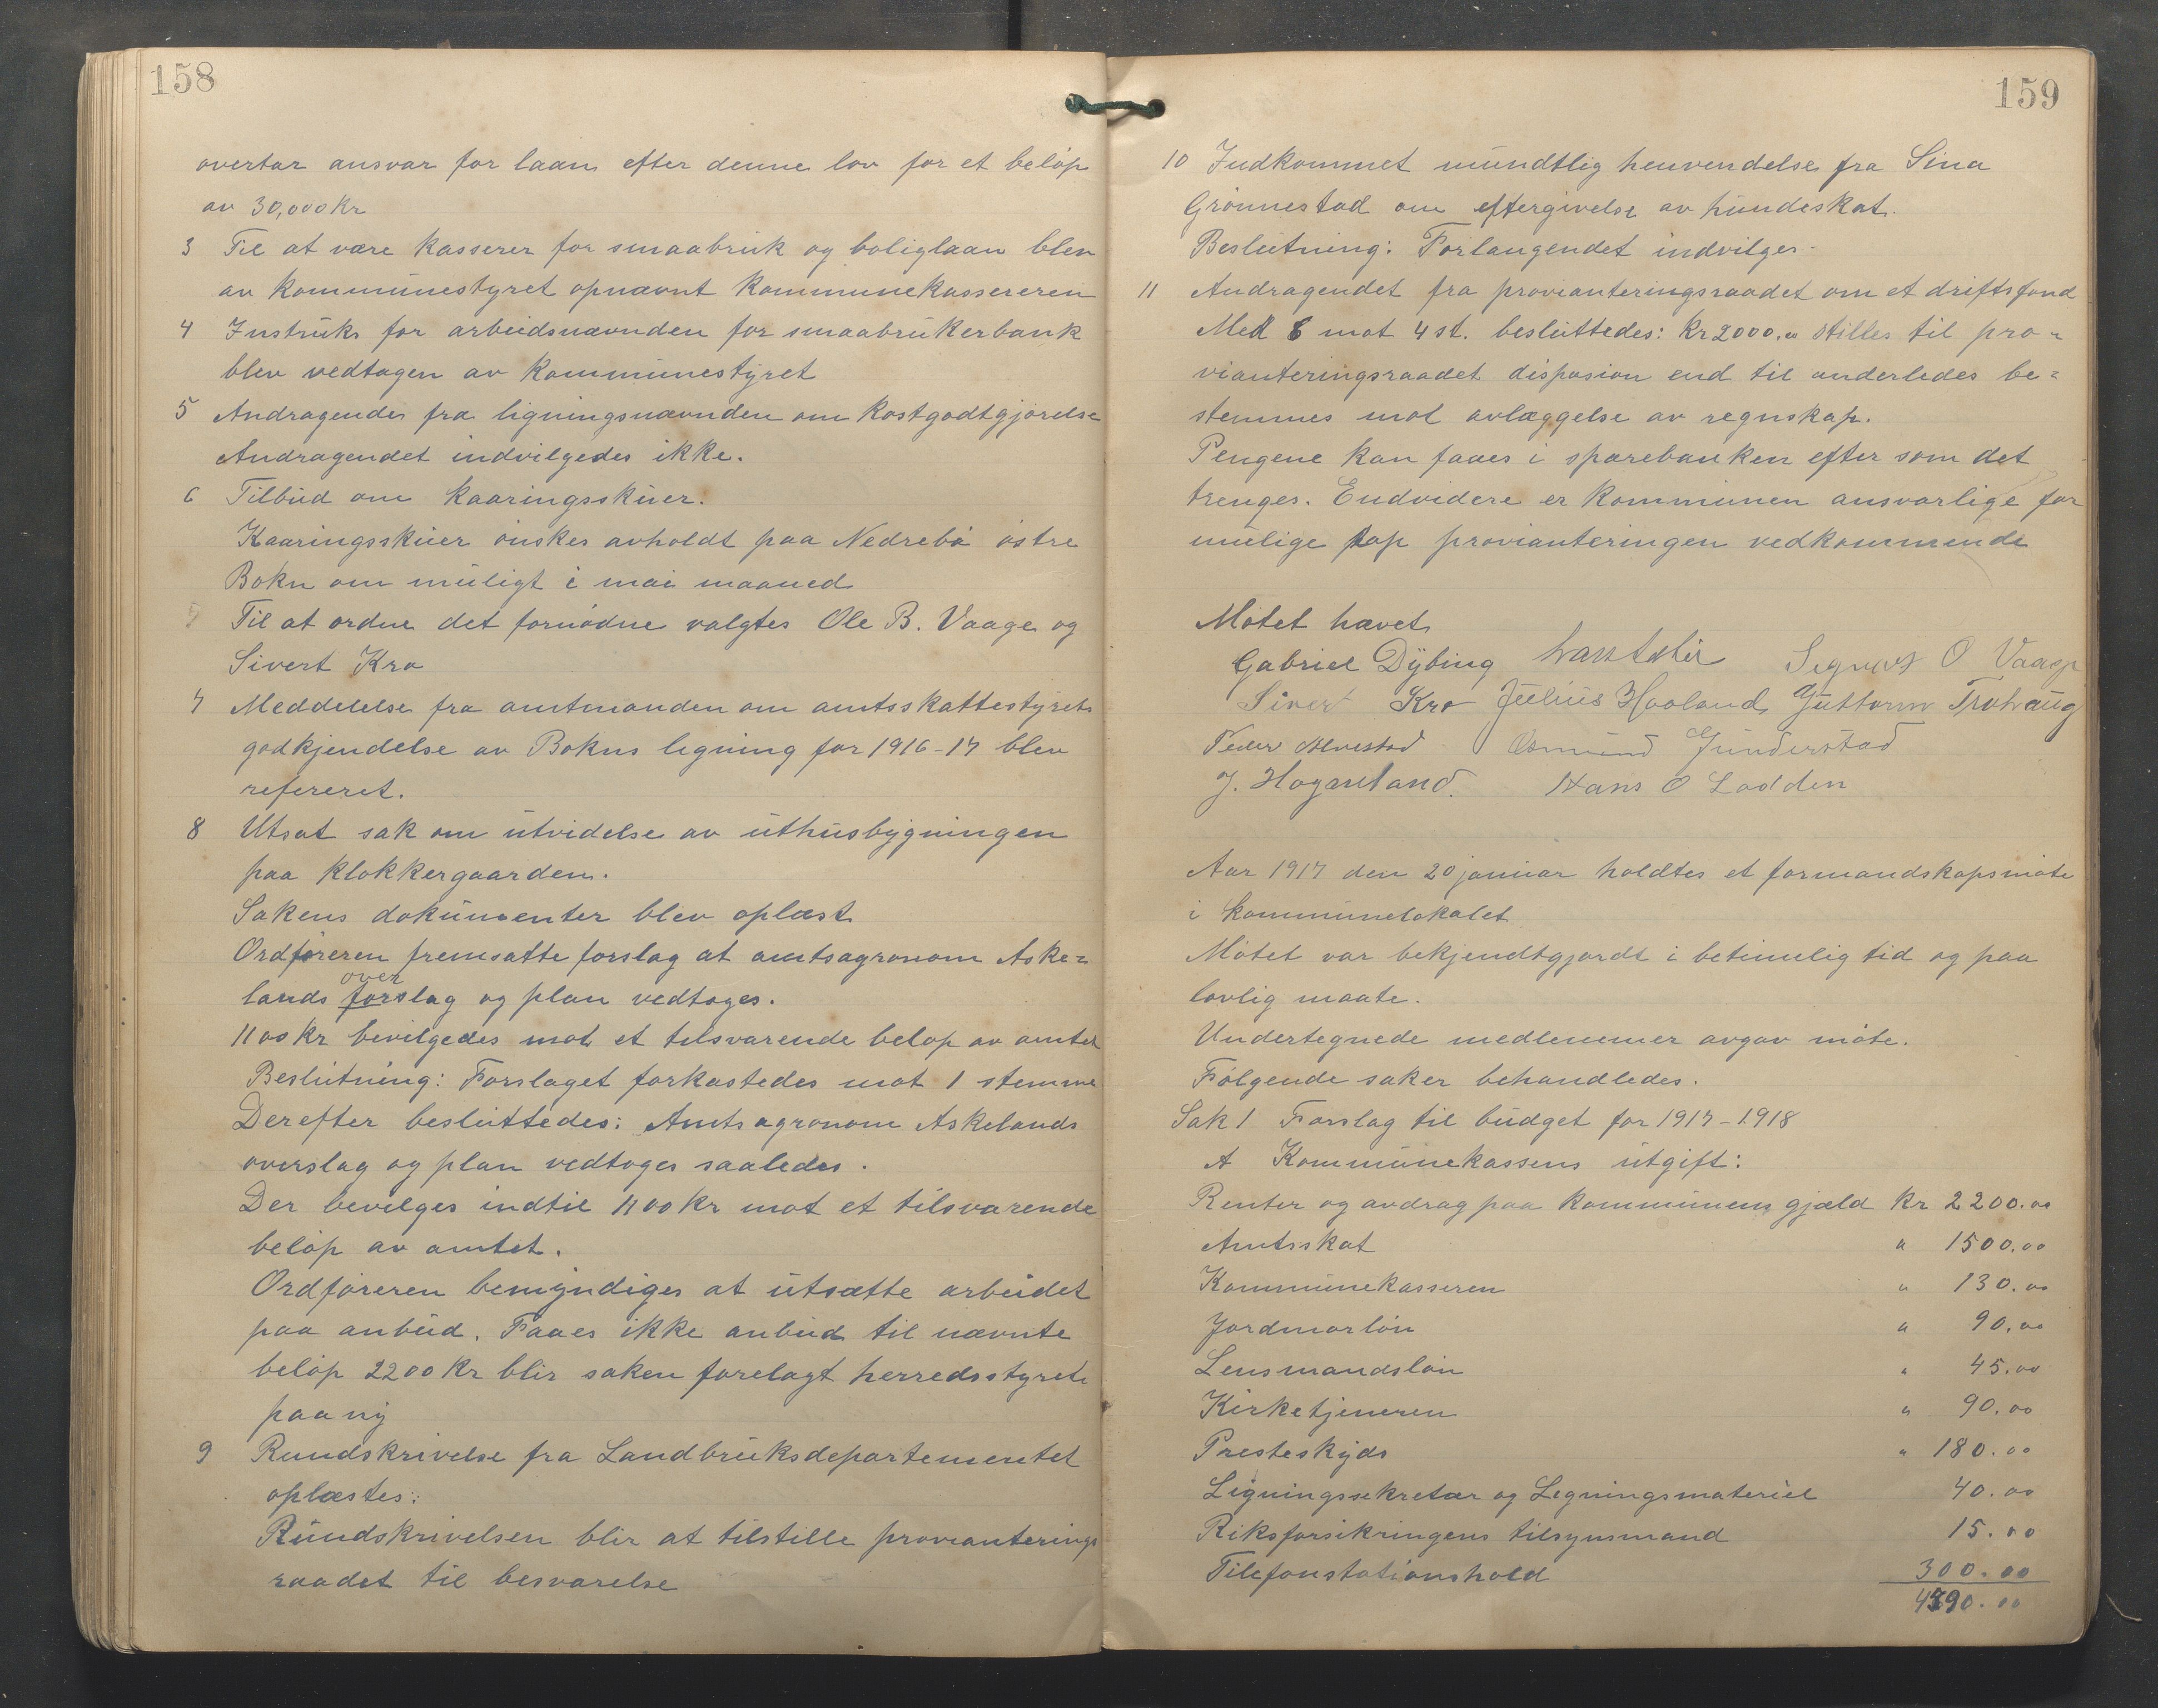 158
overtar ansvar for laan efter denne lov for et beløp
av 30,000 kr
3 Til at være kasserer for smaabruk og boliglaan blev
av kommunestyret opnævnt kommunekassereren
4 Instruks for arbeidsnævnden for smaabrukerbank
blev vedtagen av kommunestyret
5 Andragende fra ligningsnævnden om kostgodtgjørelse
Andragendet indvilgedes ikke.
6 Tilbud om kaaringsskuer.
Kaaringsskuer ønskes avholdt paa Nedrebø østre
Bokn om muligt i mai maaned
Til at ordne det fornødne valgtes Ole B. Vaage og
Sivert Kro
7 Meddelelse fra amtmanden om amtsskattestyrets
godkjendelse av Bokns ligning for 1916-17 blev
refereret.
8 Utsat sak om utvidelse av uthusbygningen
paa klokkergaarden.
Sakens dokumenter blev oplæst
Ordføreren fremsatte forslag at amtsagronom Aske=
over
lands forslag og plan vedtages.
1100 kr bevilgedes mot et tilsvarende beløp av amtet
Beslutning: Forslaget forkastedes mot 1 stemme
Derefter besluttedes: Amtsagronom Askelands
overslag og plan vedtages saaledes.
Der bevilges indtil 1100 kr mot et tilsvarende
beløp av amtet.
Ordføreren bemyndiges at utsætte arbeidet
paa anbud. Faaes ikke anbud til nævnte
beløp 2200 kr blir saken forelagt herredsstyret
paa ny
9 Rundskrivelse fra Landbruksdepartementet
oplæstes:
Rundskrivelsen blir at tilstille provianterings
raadet til besvarelse
159
10 Indkommet mundtlig henvendelse fra Sina
Grønnestad om eftergivelse av hundeskat.
Beslutning: Forlangendet indvilges.
11 Andragendet fra provianteringsraadet om et driftsfond
Med 8 mot 4 st. besluttedes: Kr 2000.00 stilles til pro=
vianteringsraadet disposion end til anderledes be=
stemmes mot avlæggelse av regnskap.
Pengene kan faaes i sparebanken efter som det
trenges. Endvidere er kommunen ansvarlige for
mulige tap provianteringen vedkommende
Møtet hævet
Gabriel Dybing Segnert O Vaage
Sivert Kro Julius Haaland Guttorm Trohaug
Peder Alvestad Osmund Gunderstad
J. Hognaland. Hans O Lodden
Aar 1917 den 20 januar holdtes et formandskapsmøte
i kommunelokalet
Møtet var bekjendtgjordt i betimelig tid og paa
lovlig maate.
Undertegnede medlemmer avgav møte.
Følgende saker behandledes.
Sak 1 Forslag til budget for 1917-1918
A Kommunekassens utgift:
Renter og avdrag paa kommunens gjæld Kr 2200.00
Amtsskat " 1500.00
Kommunekasseren " 130.00
Jordmorløn " 90.00
Lensmandsløn " 45.00
Kirketjeneren " 90.00
Presteskyds " 180.00
Ligningssekretær og Ligningsmateriel 40.00
Riksforsikringens tilsynsmand 15.00
Tilefonstationshold 300.00
4590.00